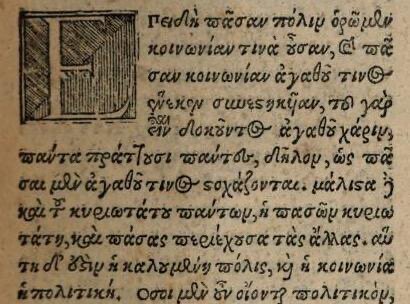 Ἐπειδὴ πᾶσαν πόλιν ὁρῶμεν
κοινωνίαν τινὰ οὖσαν, καὶ πᾶ
σαν κοινωνίαν ἀγαθοῦ τινος
ἕνεκεν συνεστηκῆαν, τοῦ γὰρ
εἶναι δοκοῦντος ἀγαθοῦ χάριν,
πάντα πράττουσι πάντες, δῆλον, ὡς πᾶ
σαι μὲν ἀγαθοῦ τινος στοχάζονται. μάλιστα δὲ
καὶ τοῦ κυριωτάτου πάντων, ἡ πασῶν κυριω
τάτη, καὶ πάσας περιέχουσα τὰς ἄλλας. αὕ
τη δ' ἐστὶν ἡ καλουμένη πόλις, καὶ ἡ κοινωνία
ἡ πολιτική. Ὅσοι μὲν οὖν οἴονται πολιτικὸν,